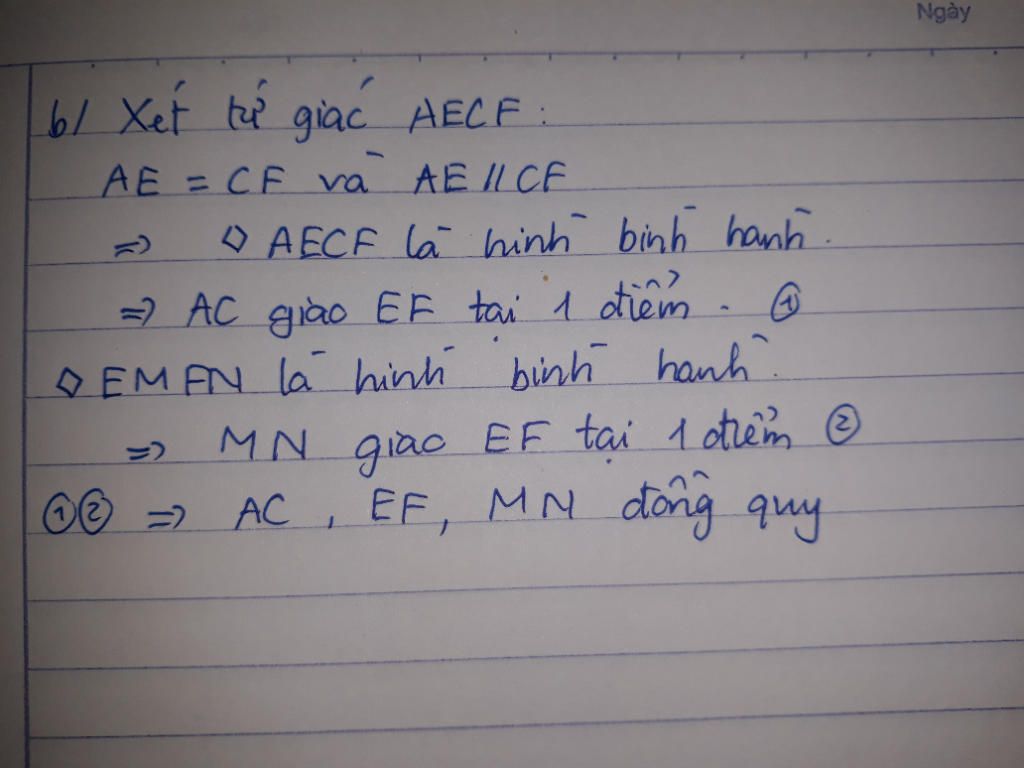 Ngày
b/ Xét tứ giác AECF:
AE = CF và AE // CF
=> ◊ AECF là hình bình hành.
=> AC giao EF tại 1 điểm. ①
◊ EMFN là hình bình hành.
=> MN giao EF tại 1 điểm ②
①② => AC, EF, MN đồng quy